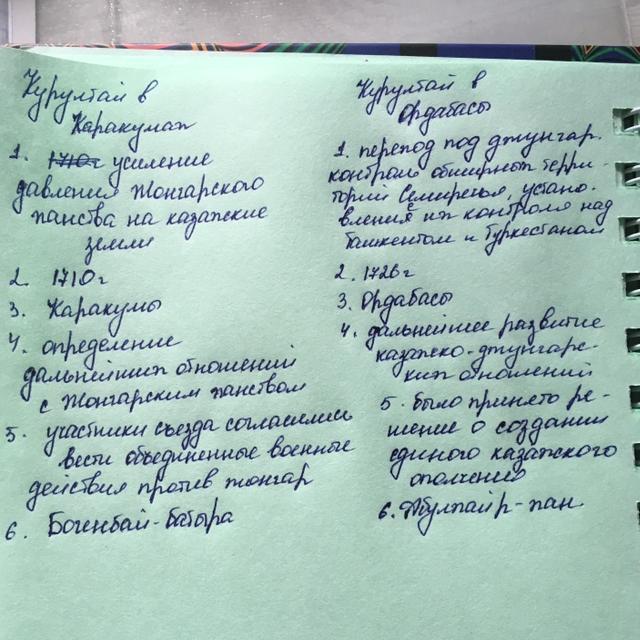 Курултай в
Каракумах
1. 1710г усиление
давления Жонгарского
ханства на казахские
земли
2. 1710г
3. Каракумы
4. определение
дальнейших отношений
с Жонгарским ханством
5. участники съезда согласились
вести объединенные военные
действия против жонгар
6. Богенбай-батыра
Курултай в
Ордабасы
1. переход под джунгар.
контроль обширной терри-
торий Семиречья, устано-
вления их контроля над
Ташкентом и Туркестаном
2. 1726г
3. Ордабасы
4. дальнейшее развитие
казахско-джунгарс-
ких отношений
5. было принято ре-
шение о создании
единого казахского
ополчения
6. Абулхаир-хан